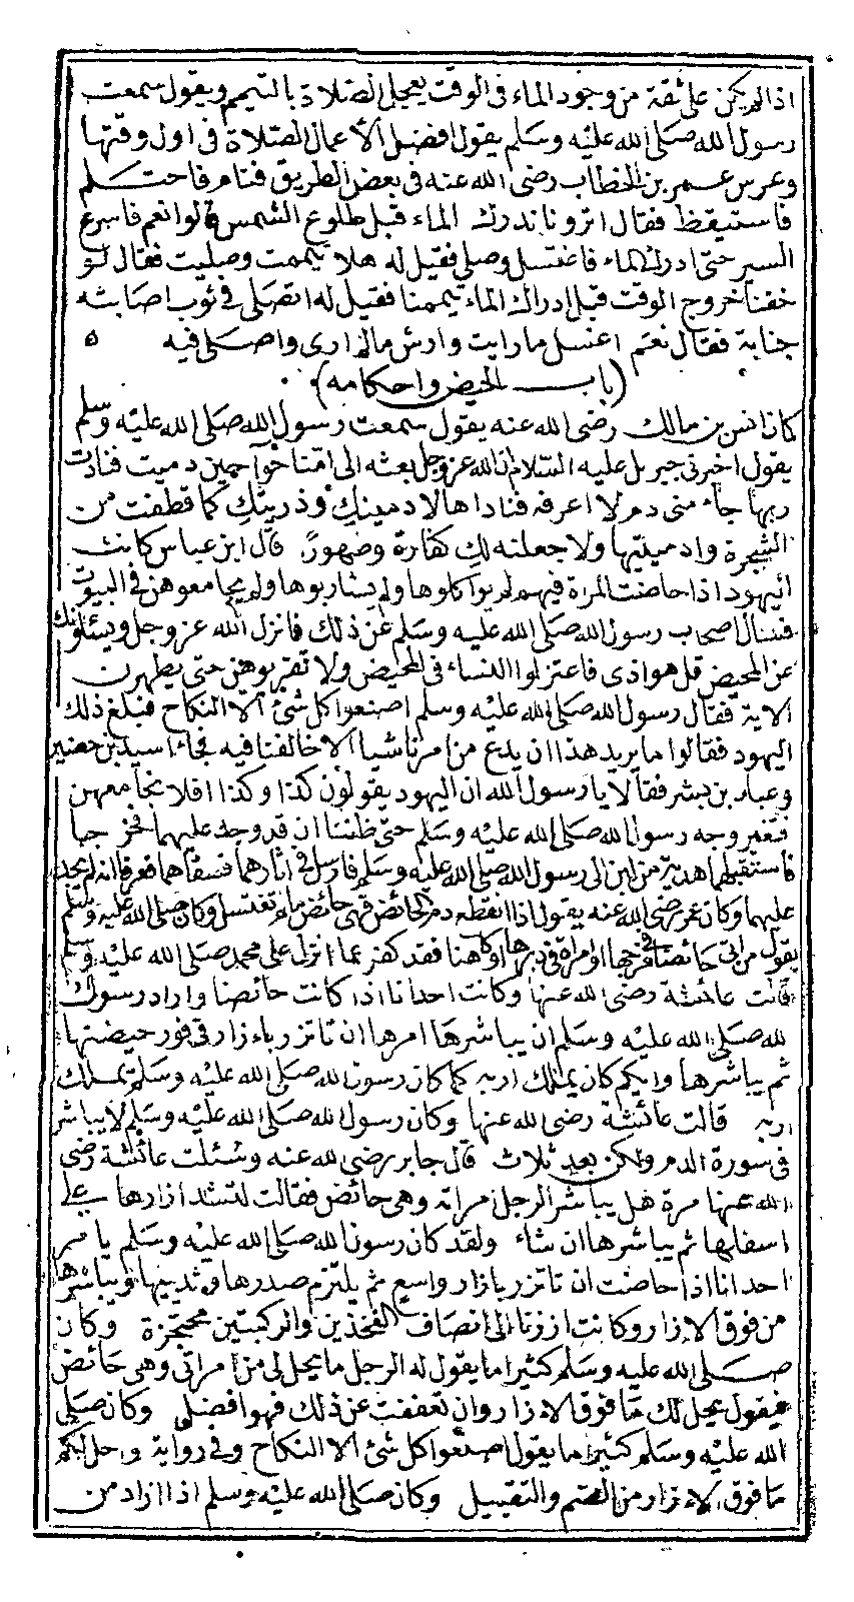 اذا لم يكن على ثقة من وجود الماء فى الوقت يعجل الصلاة بالتيمم ويقول سمعت
رسول الله صلى الله عليه وسلم يقول افضل الأعمال الصلاة فى اول وقتها
وعرس عمر بن الخطاب رضى الله عنه فى بعض الطريق فنام فاحتلم
فاستيقظ فقال اترونا ندرك الماء قبل طلوع الشمس قالوا نعم فاسرع
السير حتى ادرك الماء فاغتسل وصلى فقيل له هلا تيممت وصليت فقال لو
خفنا خروج الوقت قبل ادراك الماء تيممنا فقيل له اتصلى فى ثوب اصابته
جنابة فقال نعم اغسل ما رايت وارش ما لم ارى واصلى فيه ه
(باب الحيض واحكامه)
كان انس بن مالك رضى الله عنه يقول سمعت رسول الله صلى الله عليه وسلم
يقول اخبرنى جبريل عليه السلام ان الله عز وجل بعثه الى امنا حوآ حين دميت فنادت
ربها جاء منى دم لا اعرفه فناداها لادمينك وذريتك كما قطفت من
الشجرة وادميتيها ولاجعلنه لك كفارة وطهورً. قال ابن عباس كانت
اليهود اذا حاضت المراة فيهم لم يواكلوها ولم يشاربوها ولم يجامعوهن فى البيوت
فسال اصحاب رسول الله صلى الله عليه وسلم عن ذلك فانزل الله عز وجل ويسئلونك
عن المحيض قل هو اذى فاعتزلوا النساء فى المحيض ولا تقربوهن حتى يطهرن
الاية فقال رسول الله صلى الله عليه وسلم اصنعوا كل شئ الا النكاح فبلغ ذلك
اليهود فقالوا ما يريد هذا ان يدع من امرنا شيا الا خالفنا فيه فجاء اسيد بن حضير
وعباد بن بشر فقالا يا رسول الله ان اليهود يقولون كذا وكذا افلا نجامعهن
فتغير وجه رسول الله صلى الله عليه وسلم حتى ظننا ان قد وجد عليهما فخرجا
فاستقبلهما هدية من لبن الى رسول الله صلى الله عليه وسلم فارسل فى اثارهما فسقاهما فعرفا انه لم يجد
عليهما وكان عمر رضى الله عنه يقول اذا انقطع دم الحائض فهى حائض ما لم تغتسل وكان صلى الله عليه وسلم
يقول من اتى حائضا فى فرجها او امراة فى دبرها او كاهنا فقد كفر بما انزل على محمد صلى الله عليه وسلم
قالت عائشة رضى الله عنها وكانت احدانا اذا كانت حائضا واراد رسول
الله صلى الله عليه وسلم ان يباشرها امرها ان تاتزر بازار فى فور حيضتها
ثم يباشرها وايكم كان يملك اربه كما كان رسول الله صلى الله عليه وسلم يملك
اربه قالت عائشة رضى الله عنها وكان رسول الله صلى الله عليه وسلم لا يباشر
فى سورة الدم ولكن بعد ثلاث قال جابر رضى الله عنه وسئلت عائشة رضى
الله عنها مرة هل يباشر الرجل امراته وهى حائض فقالت لتشد ازارها على
اسفلها ثم يباشرها ان شاء ولقد كان رسول الله صلى الله عليه وسلم يامر
احدانا اذا حاضت ان تاتزر بازار واسع ثم يلتزم صدرها وثدييها ويباشرها
من فوق الازار وكانت ازرنا الى انصاف الفخذين والركبتين محتجزة وكان
صلى الله عليه وسلم كثيرا ما يقول له الرجل ما يحل لى من امراتى وهى حائض
فيقول يحل لك ما فوق الازار وان تعففت عن ذلك فهو افضل وكان صلى
الله عليه وسلم كثيرا ما يقول اصنعوا كل شئ الا النكاح وفى رواية واحل لكم
ما فوق الازار من الضم والتقبيل وكان صلى الله عليه وسلم اذا اراد من